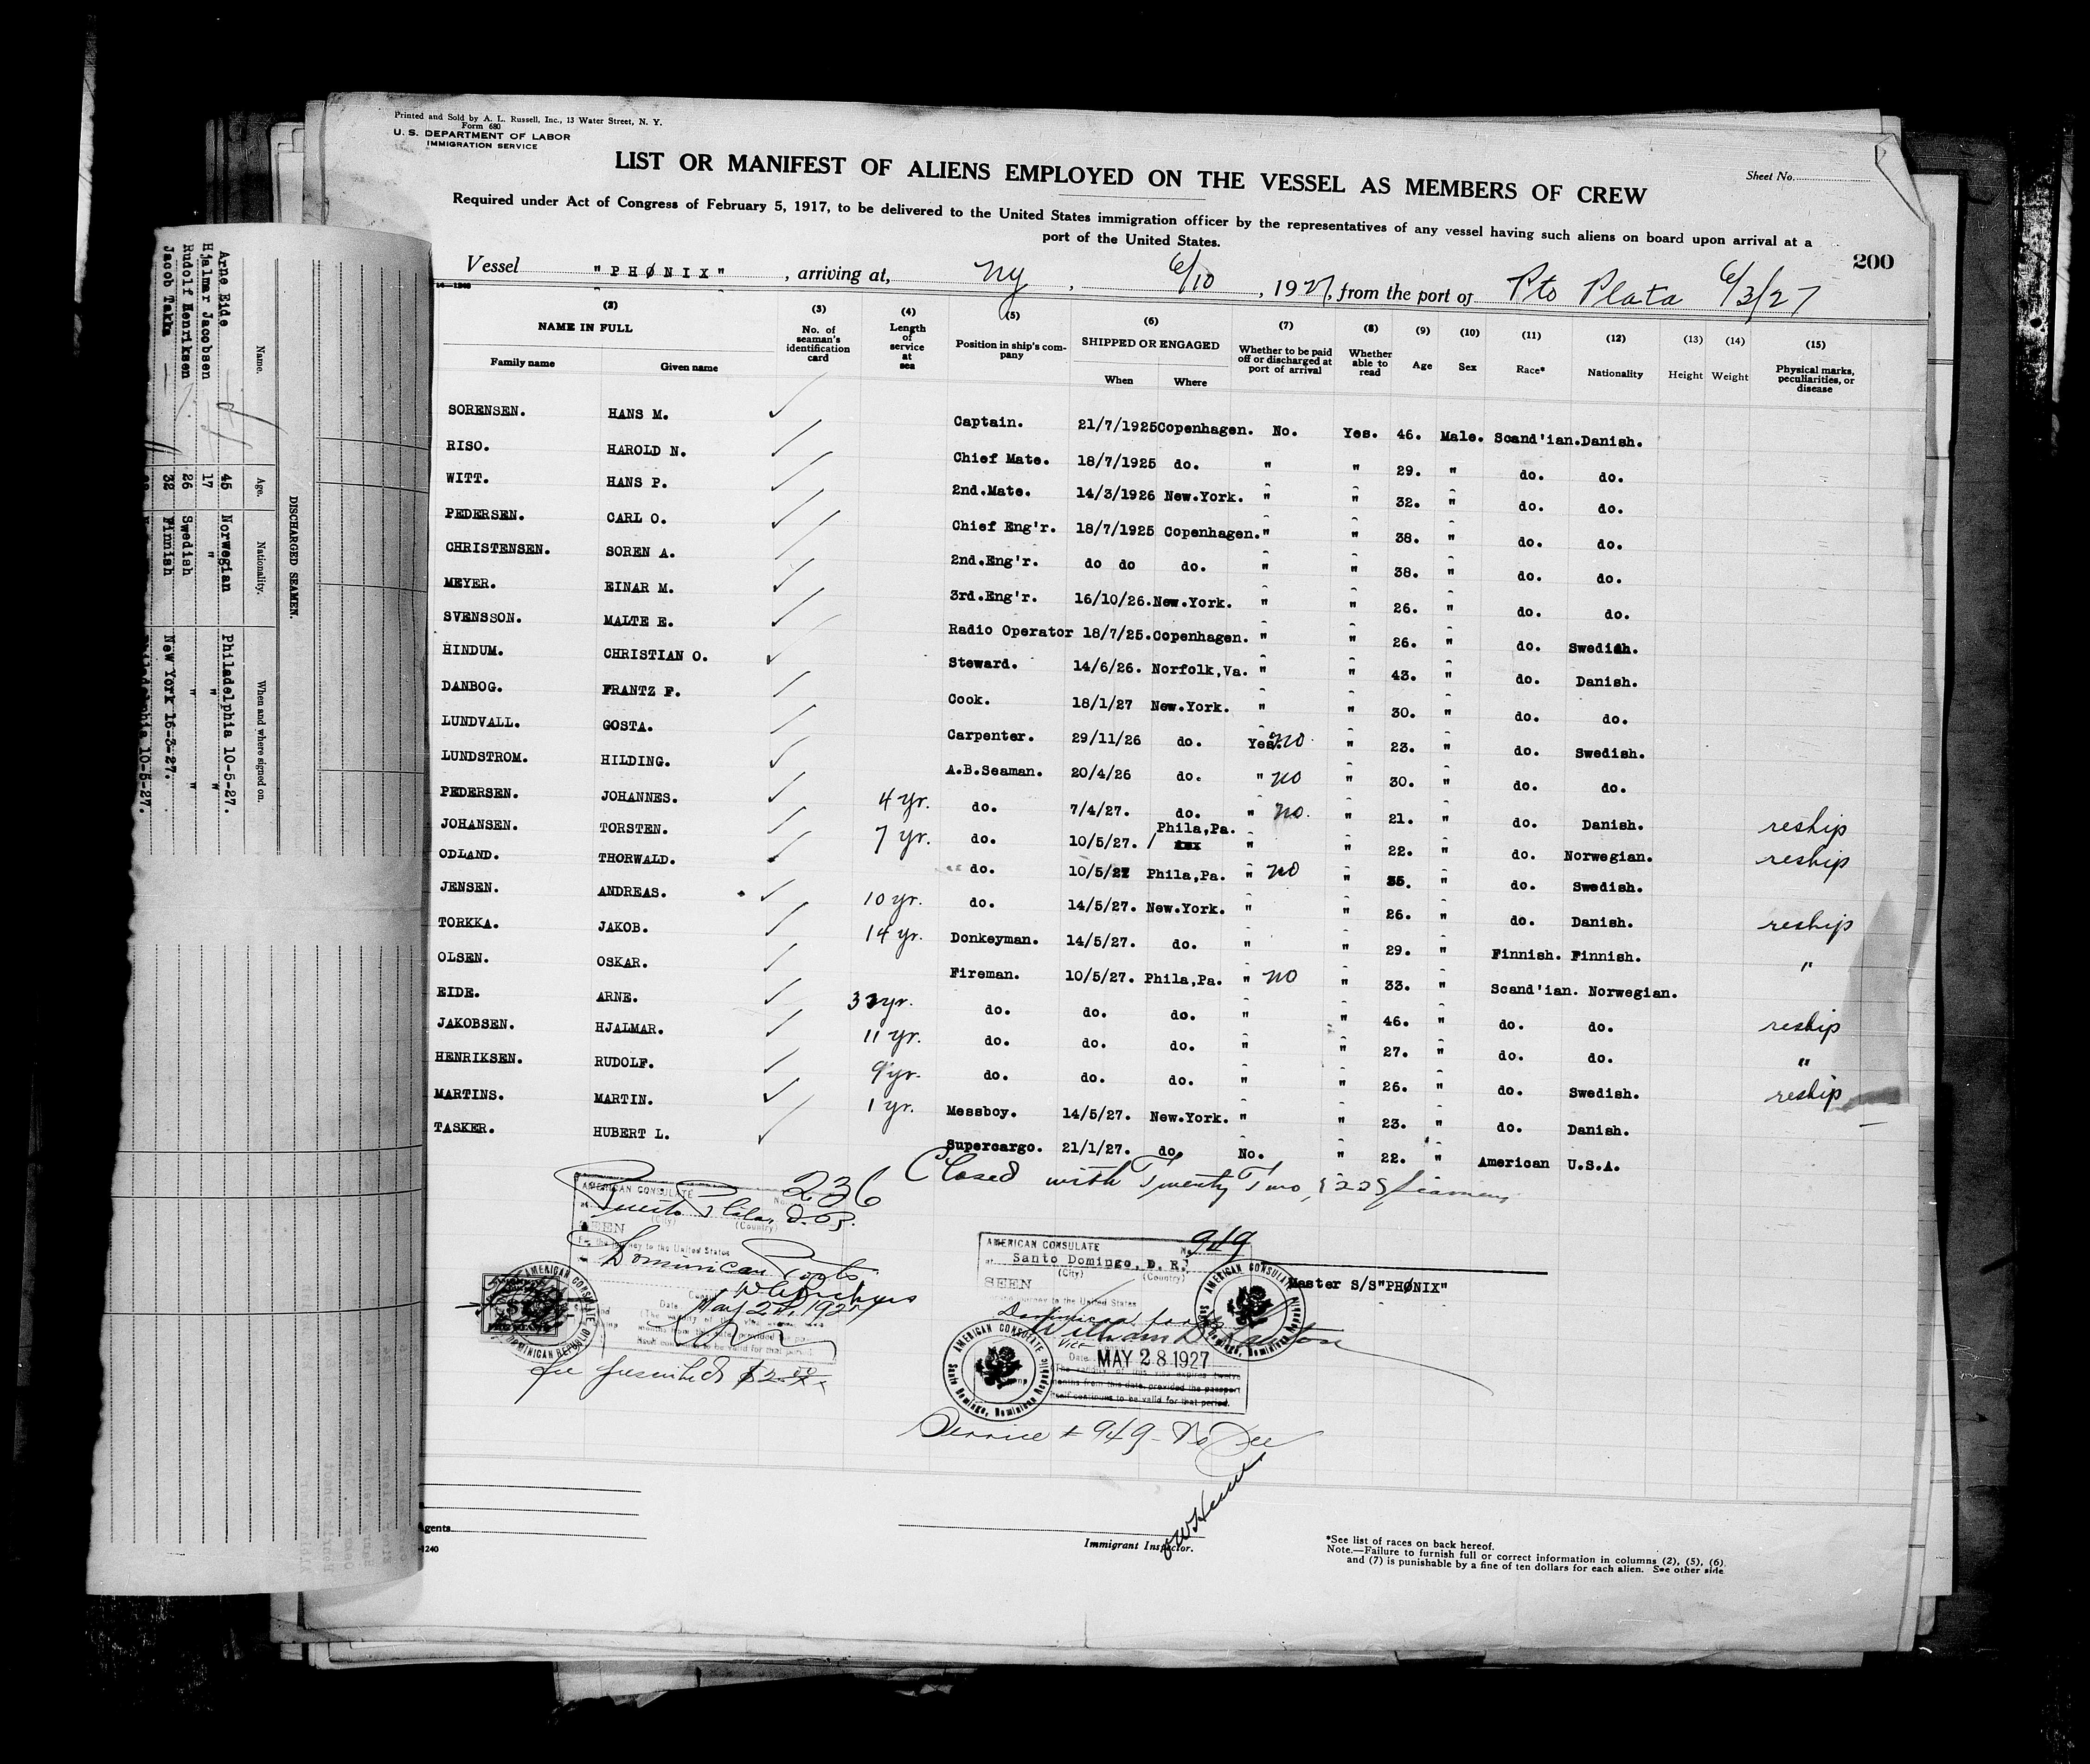 Printed and Sold by A. L. Russell, Inc., 13 Water Street, N. Y.
Form 680
U. S. DEPARTMENT OF LABOR
IMMIGRATION SERVICE
LIST OR MANIFEST OF ALIENS EMPLOYED ON THE VESSEL AS MEMBERS OF CREW
Sheet No.
Required under Act of Congress of February 5, 1917, to be delivered to the United States immigration officer by the representatives of any vessel having such aliens on board upon arrival at a
port of the United States.
200
Vessel "PHØNIX", arriving at, NY, 6/10, 1927, from the port of Pto Plata 6/3/27
14—1240
(2) (3) (4) (5) (6) (7) (8) (9) (10) (11) (12) (13) (14) (15)
NAME IN FULL Family name Given name
No. of seaman's identification card
Length of service at sea
Position in ship's company
SHIPPED OR ENGAGED When Where
Whether to be paid off or discharged at port of arrival
Whether able to read
Age Sex Race* Nationality Height Weight
Physical marks, peculiarities, or disease
SORENSEN. HANS M. ✓ Captain. 21/7/1925 Copenhagen. No. Yes. 46. Male. Scand'ian. Danish.
RISO. HAROLD N. ✓ Chief Mate. 18/7/1925 do. " " 29. " do. do.
WITT. HANS P. ✓ 2nd.Mate. 14/3/1926 New.York. " " 32. " do. do.
PEDERSEN. CARL O. ✓ Chief Eng'r. 18/7/1925 Copenhagen. " " 38. " do. do.
CHRISTENSEN. SOREN A. ✓ 2nd.Eng'r. do do do. " " 38. " do. do.
MEYER. EINAR M. ✓ 3rd.Eng'r. 16/10/26. New.York. " " 26. " do. do.
SVENSSON. MALTE E. ✓ Radio Operator 18/7/25. Copenhagen. " " 26. " do. Swedish.
HINDUM. CHRISTIAN O. ✓ Steward. 14/6/26. Norfolk,Va. " " 43. " do. Danish.
DANBOG. FRANTZ F. ✓ Cook. 18/1/27 New.York. " " 30. " do. do.
LUNDVALL. GOSTA. ✓ Carpenter. 29/11/26 do. Yes. no. " 23. " do. Swedish.
LUNDSTROM. HILDING. ✓ A.B.Seaman. 20/4/26 do. " no " 30. " do. do.
PEDERSEN. JOHANNES. ✓ 4 yr. do. 7/4/27. do. " no. " 21. " do. Danish. reship
JOHANSEN. TORSTEN. ✓ 7 yr. do. 10/5/27. Phila,Pa. " " 22. " do. Norwegian. reship
ODLAND. THORWALD. ✓ do. 10/5/27 Phila,Pa. " no " 35. " do. Swedish.
JENSEN. ANDREAS. ✓ 10 yr. do. 14/5/27. New.York. " " 26. " do. Danish. reship
TORKKA. JAKOB. ✓ 14 yr. Donkeyman. 14/5/27. do. " " 29. " Finnish. Finnish. "
OLSEN. OSKAR. ✓ Fireman. 10/5/27. Phila,Pa. " no " 33. " Scand'ian. Norwegian.
EIDE. ARNE. ✓ yr. do. do. do. " " 46. " do. do. reship
JAKOBSEN. HJALMAR. ✓ 11 yr. do. do. do. " " 27. " do. do. "
HENRIKSEN. RUDOLF. ✓ 9 yr. do. do. do. " " 26. " do. Swedish. reship
MARTINS. MARTIN. ✓ 1 yr. Messboy. 14/5/27. New.York. " " 23. " do. Danish.
TASKER. HUBERT L. ✓ Supercargo. 21/1/27. do. No. " 22. " American U.S.A.
Closed with Twenty Two, (22)
236
AMERICAN CONSULATE
at Puerto Plata, D.R.
(City) (Country)
SEEN
For the journey to the United States
Dominican Ports
May 1927
fee prescribed $2.00
AMERICAN CONSULATE
DOMINICAN REPUBLIC
AMERICAN CONSULATE No. 949
at Santo Domingo, D. R.
(City) (Country)
SEEN
journey to the United States
William B. Lawton
Vice
Date MAY 28 1927
(The validity of this visa expires twelve
months from this date, provided the passport
itself continues to be valid for that period.
AMERICAN CONSULATE
Santo Domingo, Dominican Republic
AMERICAN CONSULATE
Santo Domingo, Dominican Republic
Master S/S"PHØNIX"
Service # 949 - No Fee
Agents
-1240
Immigrant Inspector.
*See list of races on back hereof.
Note.—Failure to furnish full or correct information in columns (2), (5), (6)
and (7) is punishable by a fine of ten dollars for each alien. See other side
DISCHARGED SEAMEN.
Name. Age. Nationality. When and where signed on.
Arne Eide 45 Norwegian Philadelphia 10-5-27.
Hjalmar Jacobsen 17 " " "
Rudolf Henriksen 26 Swedish " "
Jacob Takka 32 Finnish New York 16-3-27.
Philadelphia 10-5-27.